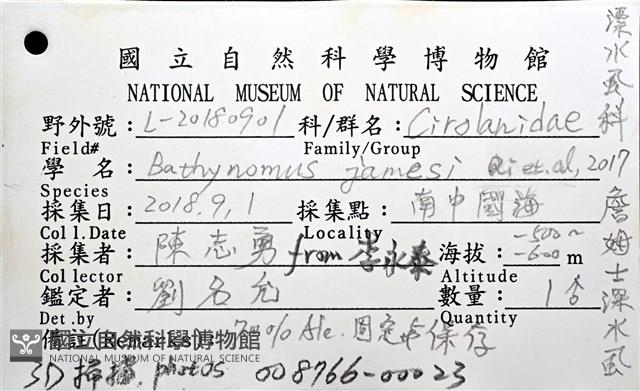 國立自然科學博物館
NATIONAL MUSEUM OF NATURAL SCIENCE
野外號：L-20180901 科/群名：Cirolanidae
Field# Family/Group
學 名：Bathynomus jamesi et.al, 2017
Species
採集日：2018.9,1 採集點：南中國海
Coll.Date Locality
採集者：陳志勇 from 李永泰 海拔：-500~-600 m
Collector Altitude
鑑定者：劉名允 數量：1
Det.by Quantity
備註(Remarks) 70% Alc. 固定 保存
國立自然科學博物館
NATIONAL MUSEUM OF NATURAL SCIENCE
3D掃描 photos 008766-00023
深水虱科
詹姆士深水虱